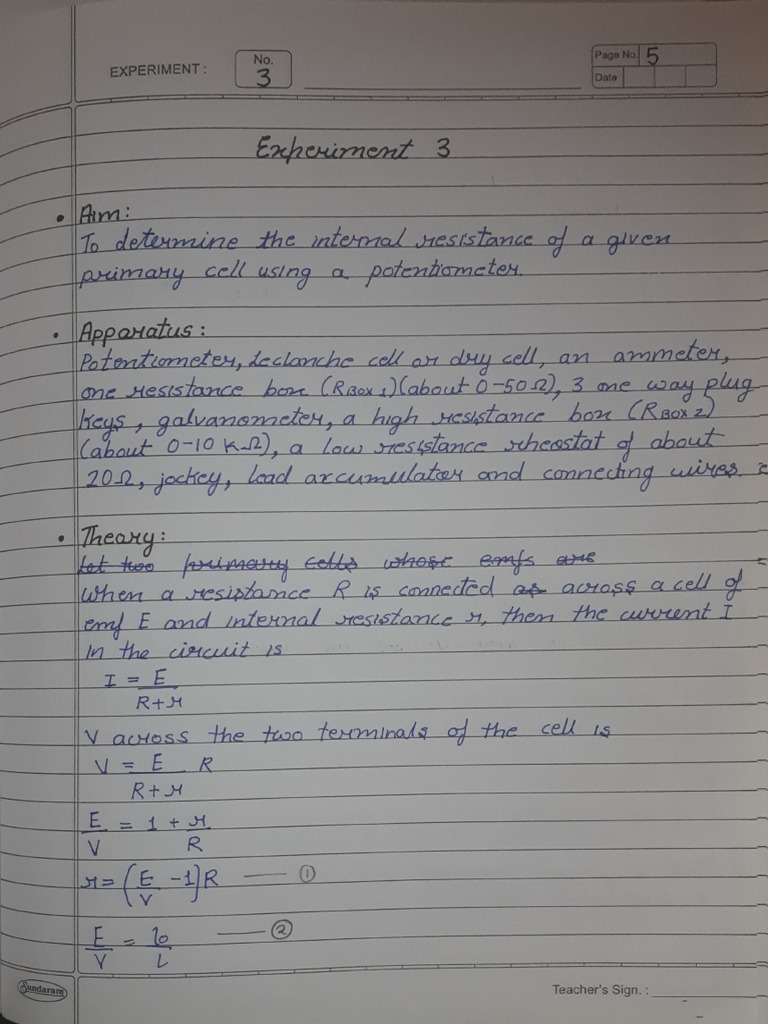 EXPERIMENT : No. 3 Page No. 5
Date
Experiment 3
• Aim:
To determine the internal resistance of a given
primary cell using a potentiometer.
• Apparatus:
Potentiometer, Leclanche cell or dry cell, an ammeter,
one resistance box (RBOX 1) (about 0-50Ω), 3 one way plug
keys, galvanometer, a high resistance box (RBOX 2)
(about 0-10 KΩ), a low resistance rheostat of about
20Ω, jockey, lead accumulator and connecting wires.
• Theory:
Let two primary cells whose emfs are
When a resistance R is connected as across a cell of
emf E and internal resistance r, then the current I
in the circuit is
I = E
R+r
V across the two terminals of the cell is
V = E R
R+r
E = 1 + r
V R
r = (E - 1) R —— ①
V
E = lo —— ②
V L
Sundaram Teacher's Sign. :